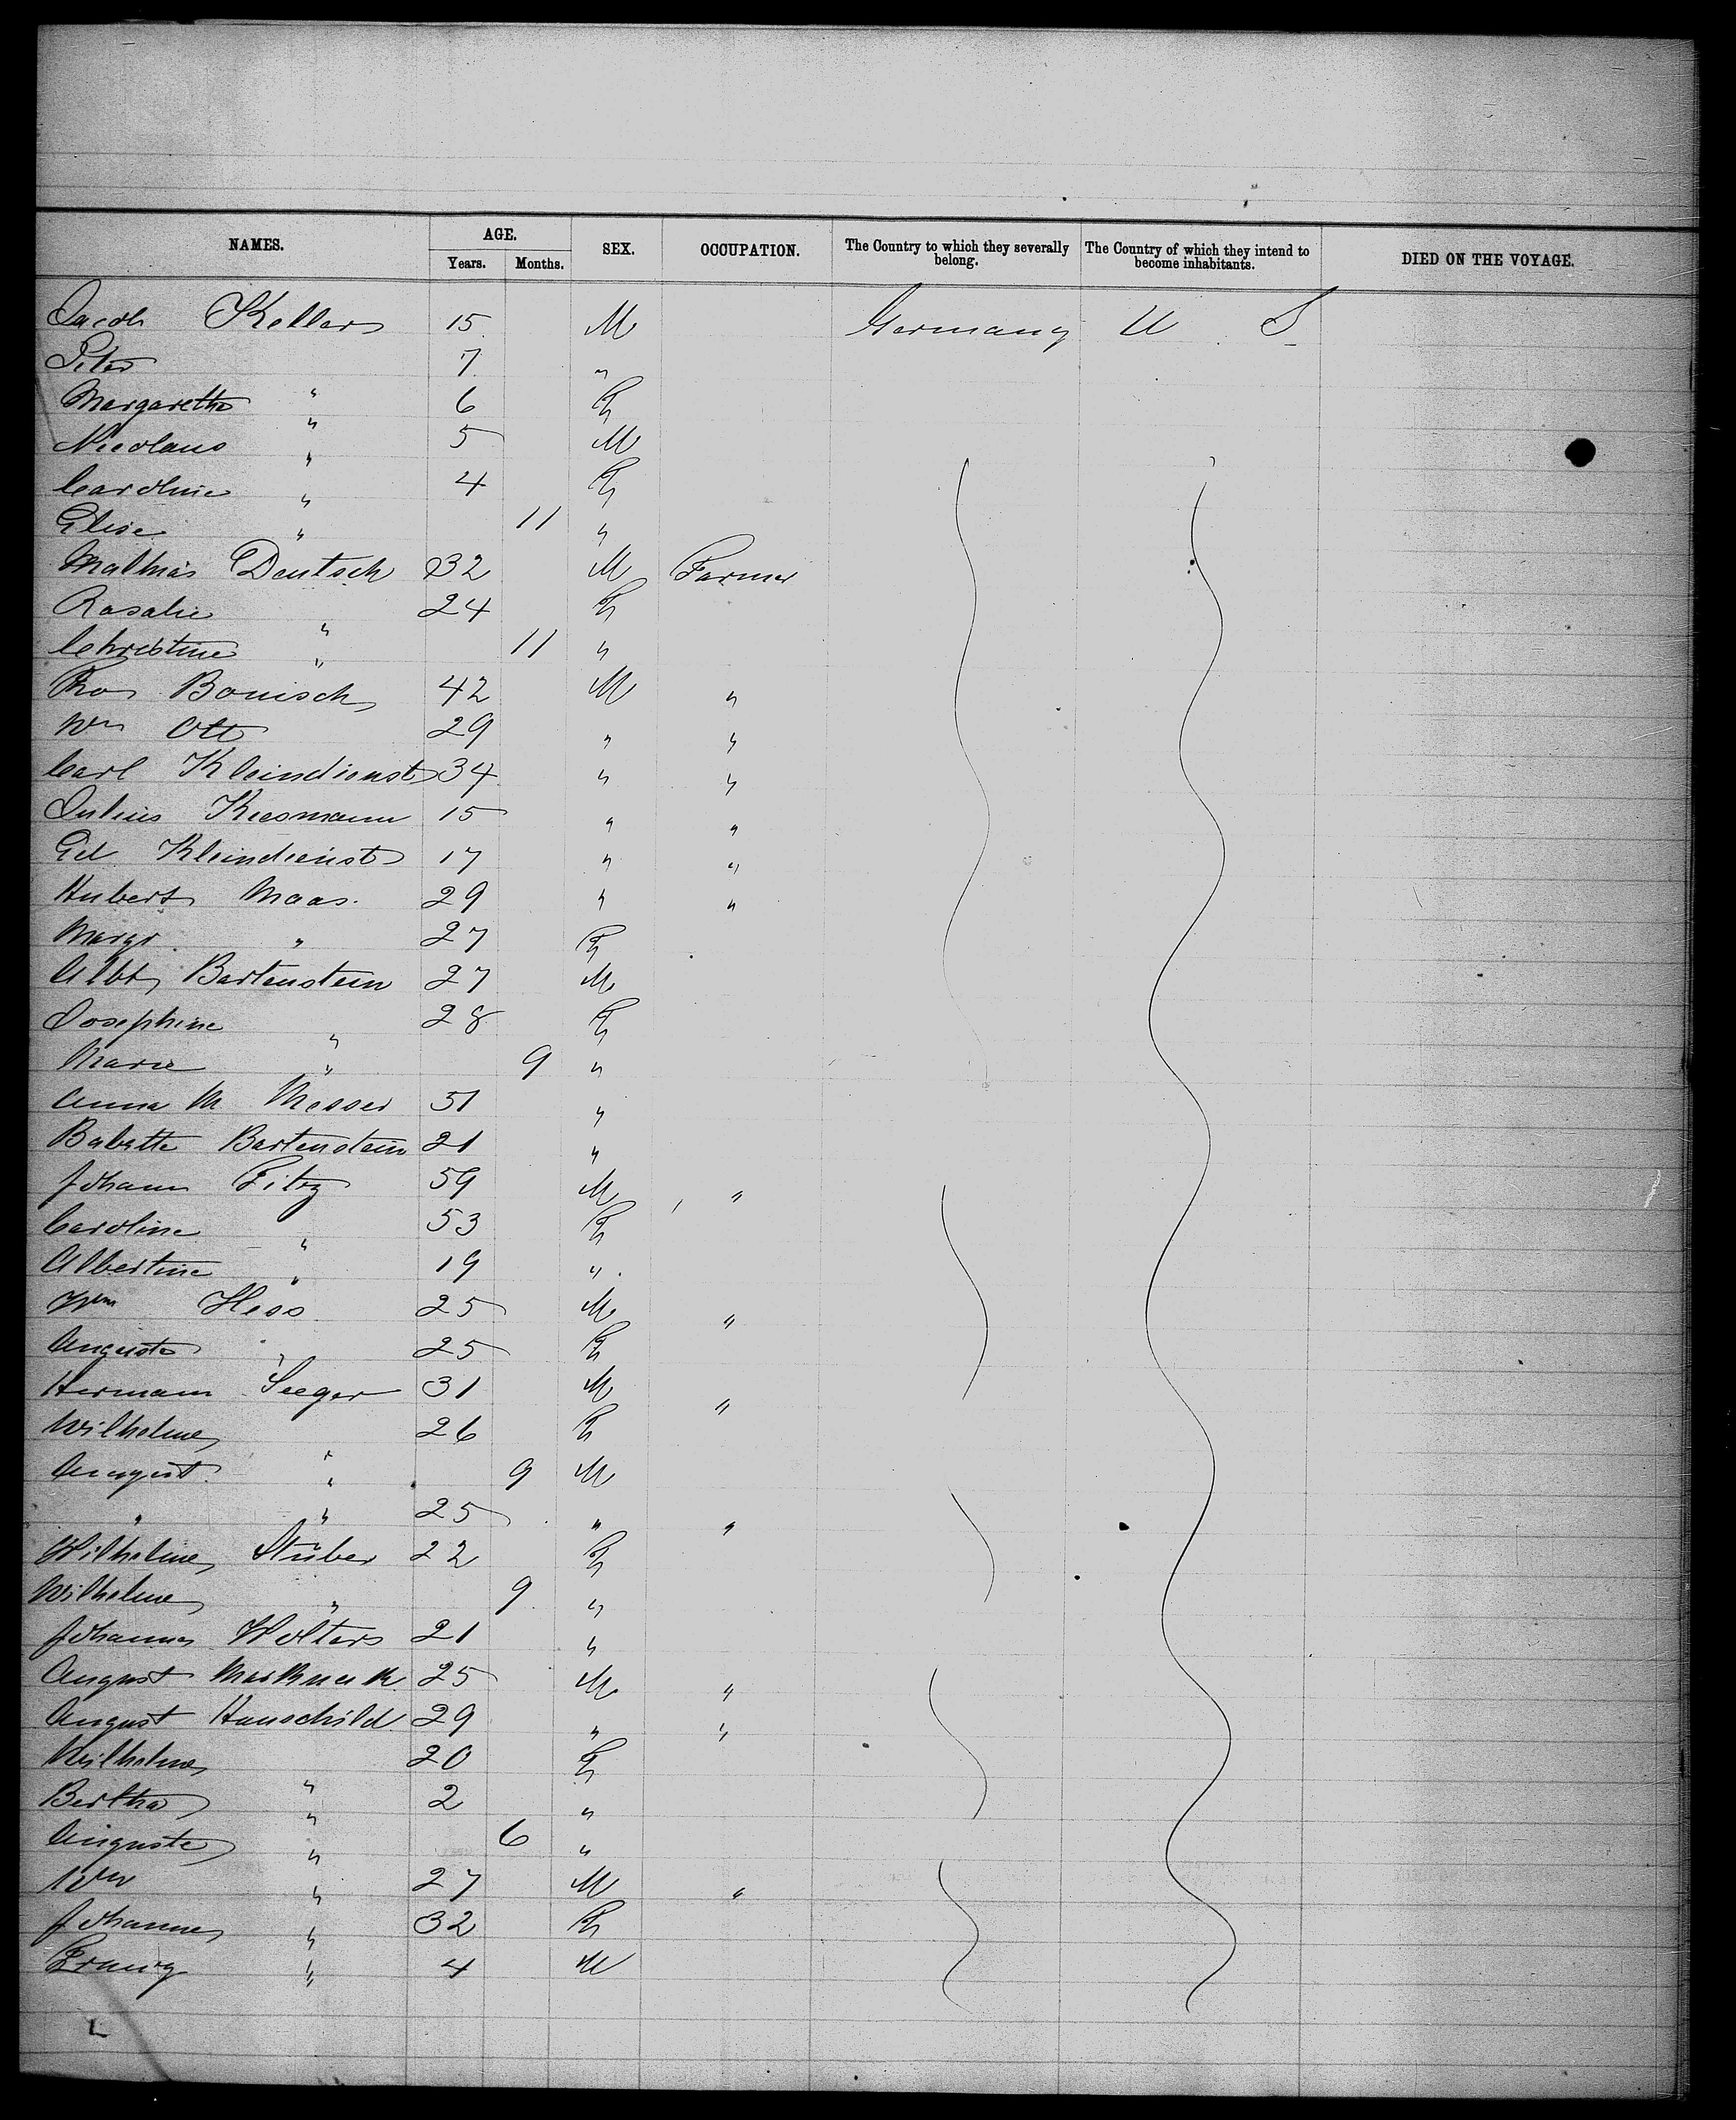 NAMES. AGE. SEX. OCCUPATION. The Country to which they severally belong. The Country of which they intend to become inhabitants. DIED ON THE VOYAGE.
Years. Months.
Jacob Keller 15 M Germany U. S.
Peter 7 "
Margaretha " 6 F
Nicolaus " 5 M
Caroline " 4 F
Elise " 11 "
Mathias Deutsch 32 M Farmer
Rosalie " 24 F
Christine " 11 "
Bonisch 42 M "
Wm Ott 29 " "
Carl Kleindienst 34 " "
Julius Kiesmann 15 " "
Ed Kleindienst 17 " "
Hubert Maas. 29 " "
Margr. " 27 F
Albt Bartenstein 27 M
Josephine " 28 F
Marie " 9 "
Anna M Messer 51 "
Babette Bartenstein 21 "
Johann Fitz 59 M "
Caroline " 53 F
Albertine " 19 "
Wm Hess 25 M "
Auguste " 25 F
Hermann Seeger 31 M "
Wilhelme " 26 F
August " 9 M
" " 25 " "
Wilhelme Stüber 22 F
Wilhelme " 9 "
Johanna Wolters 21 "
August 25 M "
August Hauschild 29 " "
Wilhelme " 20 F
Bertha " 2 "
Auguste " 6 "
Wm " 27 M "
Johanne " 32 F
Franz " 4 M